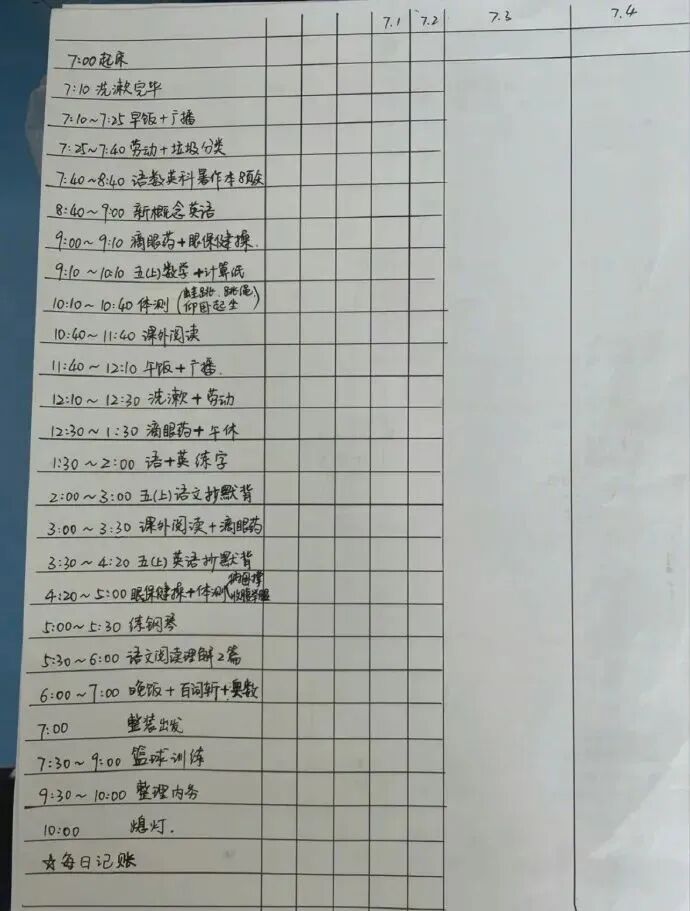 7.1 7.2 7.3 7.4
7:00 起床
7:10 洗漱完毕
7:10~7:25 早饭+广播
7:25~7:40 劳动+垃圾分类
7:40~8:40 语数英科暑作本8页
8:40~9:00 新概念英语
9:00~9:10 滴眼药+眼保健操.
9:10~10:10 五(上)数学+计算纸
10:10~10:40 体测(蛙跳、跳绳、仰卧起坐)
10:40~11:40 课外阅读
11:40~12:10 午饭+广播.
12:10~12:30 洗漱+劳动
12:30~1:30 滴眼药+午休
1:30~2:00 语+英练字
2:00~3:00 五(上)语文抄默背
3:00~3:30 课外阅读+滴眼药
3:30~4:20 五(上)英语抄默背
4:20~5:00 眼保健操+体测
5:00~5:30 练钢琴
5:30~6:00 语文阅读理解2篇
6:00~7:00 晚饭+百词斩+奥数
7:00 整装出发
7:30~9:00 篮球训练
9:30~10:00 整理内务
10:00 熄灯.
☆每日记账